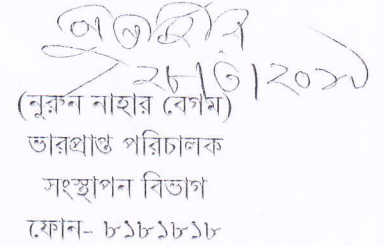 ২৮|৩|২০১৯
(নুরুন নাহার বেগম)
ভারপ্রাপ্ত পরিচালক
সংস্থাপন বিভাগ
ফোন- ৮১৮১৮১৮